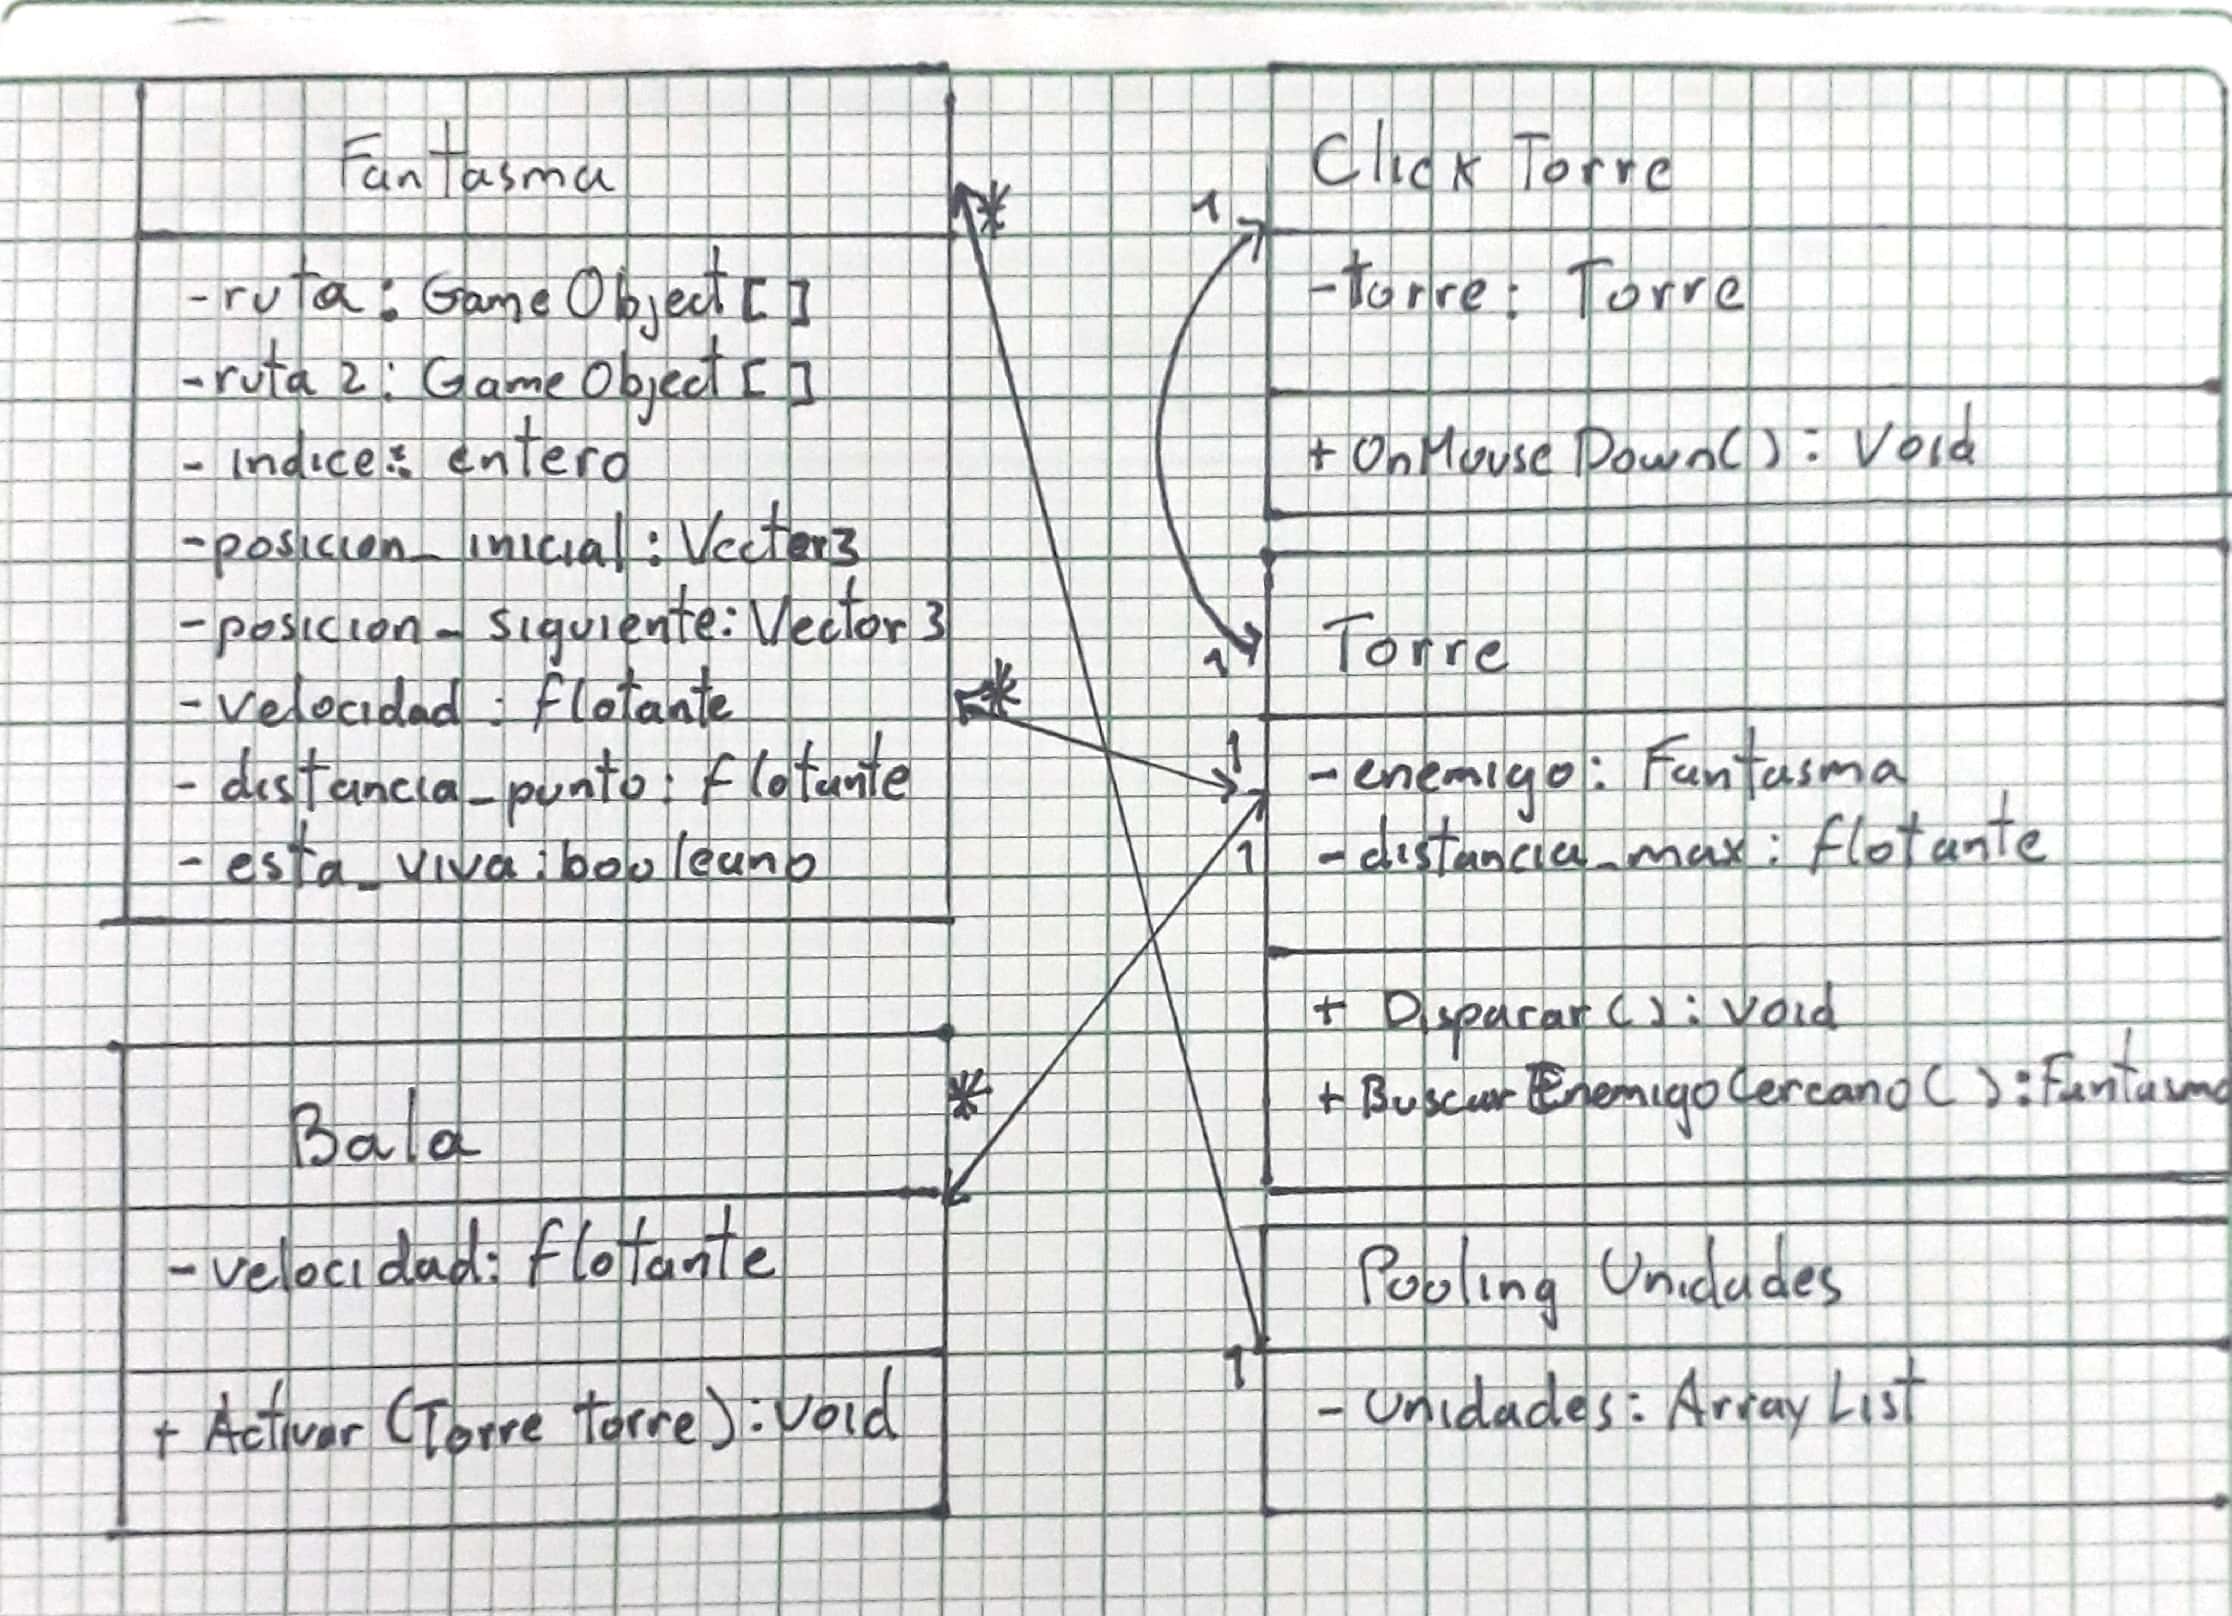 Fantasma
-ruta: GameObject[]
-ruta 2: GameObject[]
- indice: entero
-posicion_inicial: Vector3
-posicion_siguiente: Vector3
-velocidad: flotante
- distancia_punto: flotante
- esta_viva: booleano
Bala
-velocidad: flotante
+ Activar (Torre torre): void
*
*
*
1
1
1
1
1
Click Torre
-torre: Torre
+ OnMouseDown(): Void
Torre
-enemigo: Fantasma
-distancia_max: flotante
+ Disparar(): void
+ BuscarEnemigoCercano(): Fantasma
Pooling Unidades
- Unidades: ArrayList